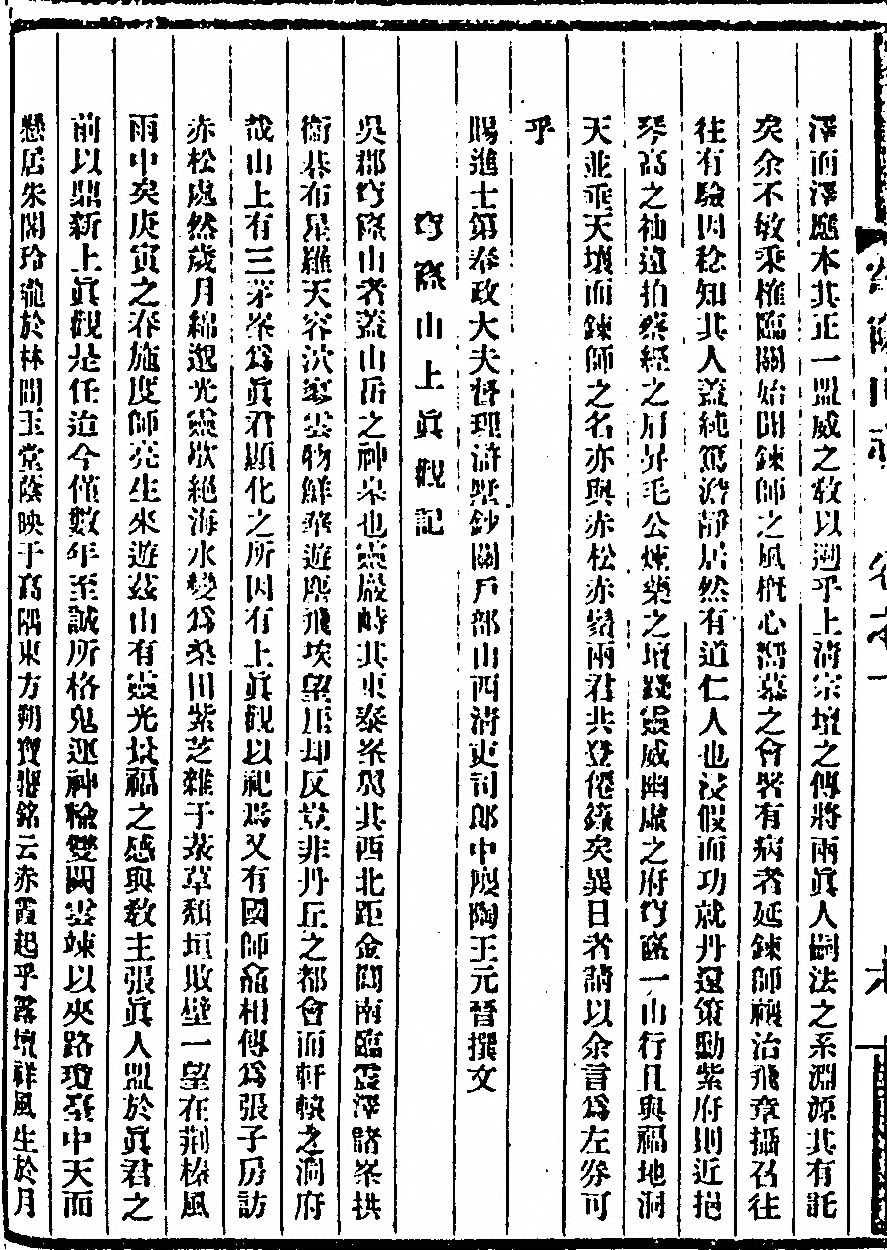 澤而澤應本其正一盟威之敎以遡乎上淸宗壇之傳將兩眞人嗣法之系淵源其有託
矣余不敏乘榷臨關始聞鍊師之風槪心竊慕之會署有病者延鍊師禳治飛章攝召往
往有驗因稔知其人蓋純篤澹靜居然有道仁人也浸假而功就丹還策勳紫府則近挹
琴高之袖遠拍蔡經之肩昇毛公煉藥之壇踐靈威幽虛之府穹窿一山行且與福地洞
天並垂天壤而鍊師之名亦與赤松赤鬚兩君共登僊籙矣異日者請以余言爲左券可
乎
賜進士第奉政大夫督理滸墅鈔關戶部山西淸吏司郎中慶陶王元晉撰文
穹窿山上眞觀記
吳郡穹窿山者蓋山岳之神皋也靈巖峙其東泰峯翼其西北距金閶南臨震澤諸峯拱
衞棊布星羅天容泬寥雲物鮮華遊塵飛埃望厓却反豈非丹丘之都會而軒轅之洞府
哉山上有三茅峯爲眞君顯化之所因有上眞觀以祀焉又有國師龕相傳爲張子房訪
赤松處然歲月綿邈光靈歇絕海水變爲桑田紫芝雜于蔓草頹垣敗壁一望在荆榛風
雨中矣庚寅之春施度師亮生來遊茲山有靈光景福之感與敎主張眞人盟於眞君之
前以鼎新上眞觀是任迨今僅數年至誠所格鬼運神輸雙闕雲竦以夾路瓊臺中天而
懸居朱閣玲瓏於林間玉堂蔭映于高隅東方朔寶甕銘云赤霞起乎露壇祥風生於月